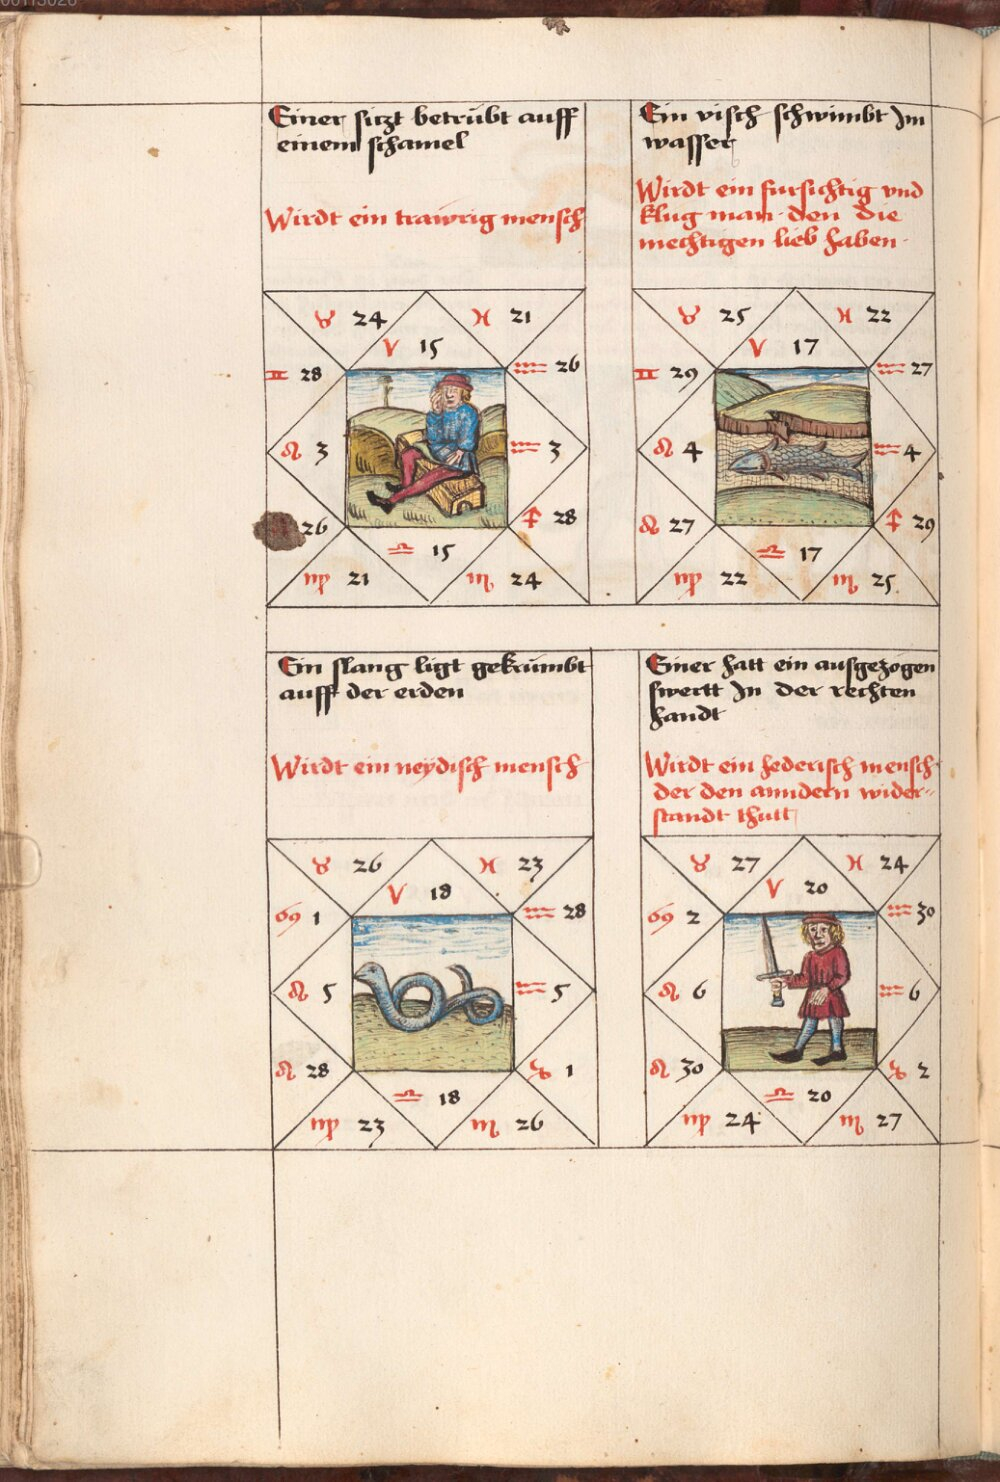 Einer siczt betrübt auff
einem schamel
Wirdt ein trawrig mensch
♉ 24
♓ 21
♈ 15
♊ 28
♒ 26
♌ 3
♒ 3
26
♐ 28
♎ 15
♍ 21
♏ 24
Ein visch schwimbt Im
wasser
Wirdt ein fursichtig vnd
klug man den die
mechtigen lieb haben
♉ 25
♓ 22
♈ 17
♊ 29
♒ 27
♌ 4
♒ 4
♌ 27
♐ 29
♎ 17
♍ 22
♏ 25
Ein slang ligt gekrümbt
auff der erden
Wirdt ein neydisch mensch
♉ 26
♓ 23
♈ 18
♋ 1
♒ 28
♌ 5
♒ 5
♌ 28
♑ 1
♎ 18
♍ 23
♏ 26
Einer hatt ein ausgezogen
swertt In der rechten
handt
Wirdt ein hederisch mensch
der den anndern wider=
standt thutt
♉ 27
♓ 24
♈ 20
♋ 2
♒ 30
♌ 6
♒ 6
♌ 30
♑ 2
♎ 20
♍ 24
♏ 27